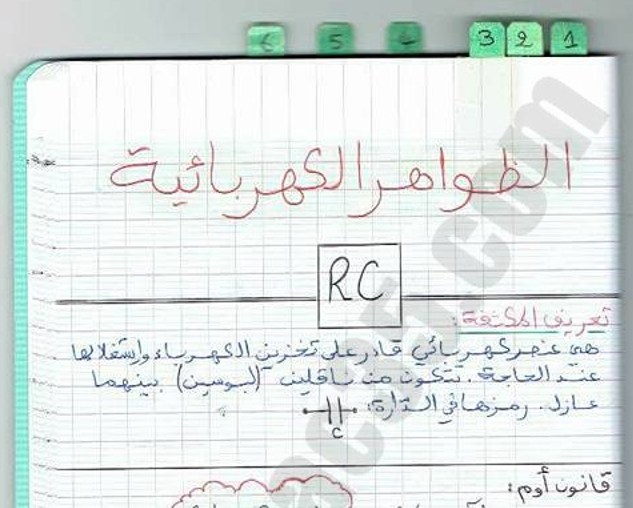 6 5 4 3 2 1
الظواهر الكهربائية
RC
تعريف المكثفة:
هي عنصر كهربائي قادر على تخزين الكهرباء واستغلالها
عند الحاجة. تتكون من ناقلين (لبوسين) بينهما
عازل. رمزها في الدارة:
C
قانون أوم: